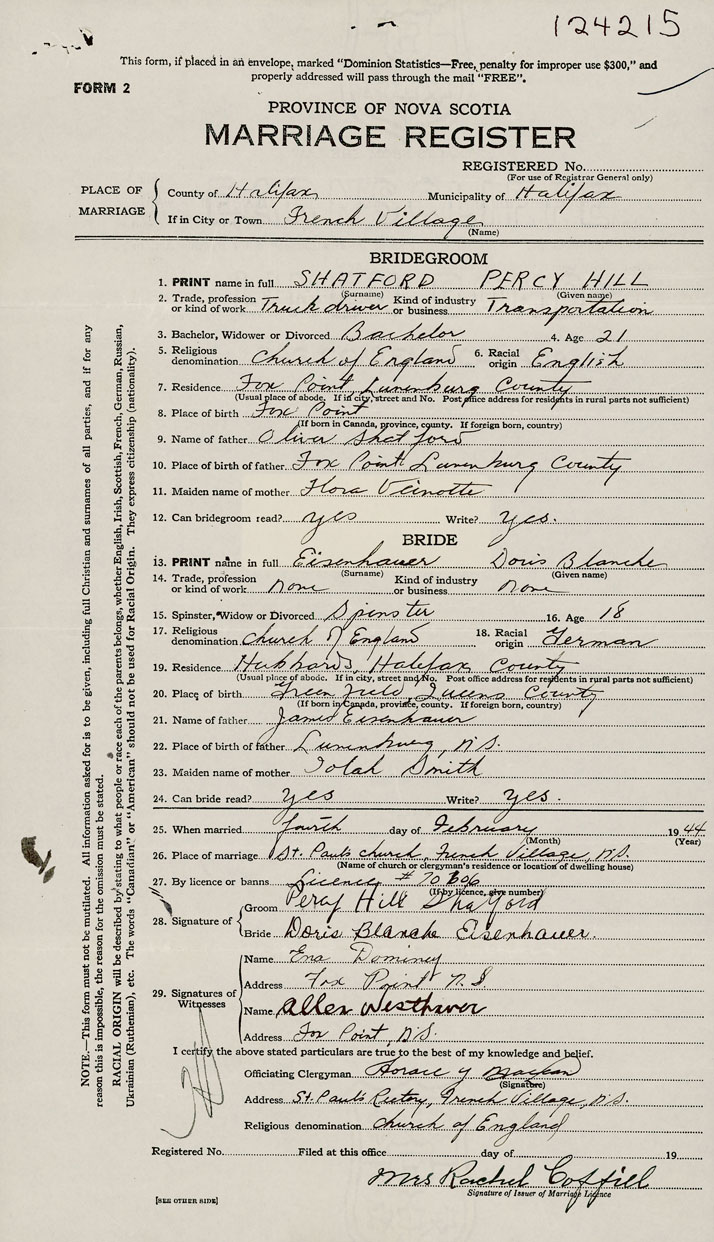 124215
This form, if placed in an envelope, marked “Dominion Statistics—Free, penalty for improper use $300,” and
properly addressed will pass through the mail “FREE”.
FORM 2
PROVINCE OF NOVA SCOTIA
MARRIAGE REGISTER
REGISTERED No.
(For use of Registrar General only)
PLACE OF MARRIAGE
County of Halifax Municipality of Halifax
If in City or Town French Village
(Name)
BRIDEGROOM
1. PRINT name in full SHATFORD PERCY HILL
(Surname) (Given name)
2. Trade, profession or kind of work Truck driver Kind of industry or business Transportation
3. Bachelor, Widower or Divorced Bachelor 4. Age 21
5. Religious denomination Church of England 6. Racial origin English
7. Residence Fox Point, Lunenburg County
(Usual place of abode. If in city, street and No. Post office address for residents in rural parts not sufficient)
8. Place of birth Fox Point
(If born in Canada, province, county. If foreign born, country)
9. Name of father Oliver Shatford
10. Place of birth of father Fox Point Lunenburg County
11. Maiden name of mother Flora Veinotte
12. Can bridegroom read? yes Write? yes.
BRIDE
13. PRINT name in full Eisenhauer Doris Blanche
(Surname) (Given name)
14. Trade, profession or kind of work None Kind of industry or business None
15. Spinster, Widow or Divorced Spinster 16. Age 18
17. Religious denomination Church of England 18. Racial origin German
19. Residence Hubbards, Halifax County
(Usual place of abode. If in city, street and No. Post office address for residents in rural parts not sufficient)
20. Place of birth Green field, Queens County
(If born in Canada, province, county. If foreign born, country)
21. Name of father James Eisenhauer
22. Place of birth of father Lunenburg, N.S.
23. Maiden name of mother Iolah Smith
24. Can bride read? yes Write? yes.
25. When married fourth day of February 1944
(Month) (Year)
26. Place of marriage St. Pauls church, French Village, N.S.
(Name of church or clergyman's residence or location of dwelling house)
27. By licence or banns Licence #
(If by licence, give number)
28. Signature of
Groom Percy Hill Shatford
Bride Doris Blanche Eisenhauer.
29. Signatures of Witnesses
Name Ena Dominey
Address Fox Point N.S
Name Allen Westhaver
Address Fox Point, N.S.
I certify the above stated particulars are true to the best of my knowledge and belief.
Officiating Clergyman Horace
(Signature)
Address St. Pauls Rectory, French Village, N.S.
Religious denomination Church of England
Registered No. Filed at this office day of 19
Mrs Rachel Coffill
Signature of Issuer of Marriage Licence
[SEE OTHER SIDE]
NOTE.—This form must not be mutilated. All information asked for is to be given, including full Christian and surnames of all parties, and if for any
reason this is impossible, the reason for the omission must be stated.
RACIAL ORIGIN will be described by stating to what people or race each of the parents belongs, whether English, Irish, Scottish, French, German, Russian,
Ukrainian (Ruthenian), etc. The words “Canadian” or “American” should not be used for Racial Origin. They express citizenship (nationality).